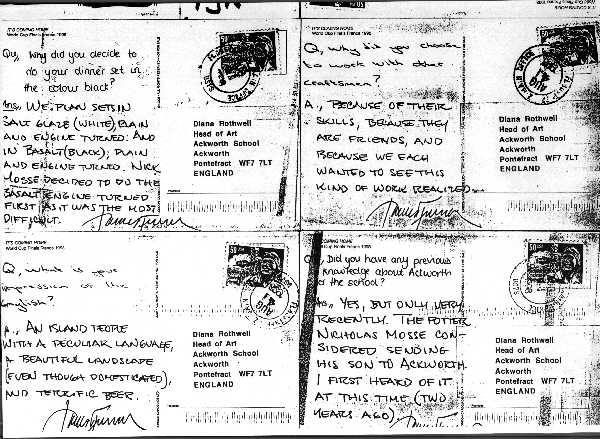 IT'S COMING HOME
World Cup Finals France 1998
Qu, Why did you decide to
do your dinner set in
the colour black?
Ans, WE PLAN SETS IN
SALT GLAZE (WHITE) PLAIN
AND ENGINE TURNED. AND
IN BASALT (BLACK); PLAIN
AND ENGINE TURNED. NICK
MOSSE DECIDED TO DO THE
BASALT ENGINE TURNED
FIRST AS IT WAS THE MOST
DIFFICULT.
Diana Rothwell
Head of Art
Ackworth School
Ackworth
Pontefract WF7 7LT
ENGLAND
IT'S COMING HOME
World Cup Finals France 1998
Q, Why did you choose
to work with other
craftsmen?
A., BECAUSE OF THEIR
SKILLS, BECAUSE THEY
ARE FRIENDS, AND
BECAUSE WE EACH
WANTED TO SEE THIS
KIND OF WORK REALIZED
Diana Rothwell
Head of Art
Ackworth School
Ackworth
Pontefract WF7 7LT
ENGLAND
IT'S COMING HOME
World Cup Finals France 1998
Q, What is your
impression of the
English?
A., AN ISLAND PEOPLE
WITH A PECULIAR LANGUAGE,
A BEAUTIFUL LANDSCAPE
(EVEN THOUGH DOMESTICATED),
AND TERRIFIC BEER.
Diana Rothwell
Head of Art
Ackworth School
Ackworth
Pontefract WF7 7LT
ENGLAND
IT'S COMING HOME
World Cup Finals France 1998
Q, Did you have any previous
knowledge about Ackworth
or the school?
Ans, YES, BUT ONLY VERY
RECENTLY. THE POTTER
NICHOLAS MOSSE CON-
SIDERED SENDING
HIS SON TO ACKWORTH
I FIRST HEARD OF IT
AT THIS TIME (TWO
YEARS AGO)
Diana Rothwell
Head of Art
Ackworth School
Ackworth
Pontefract WF7 7LT
ENGLAND